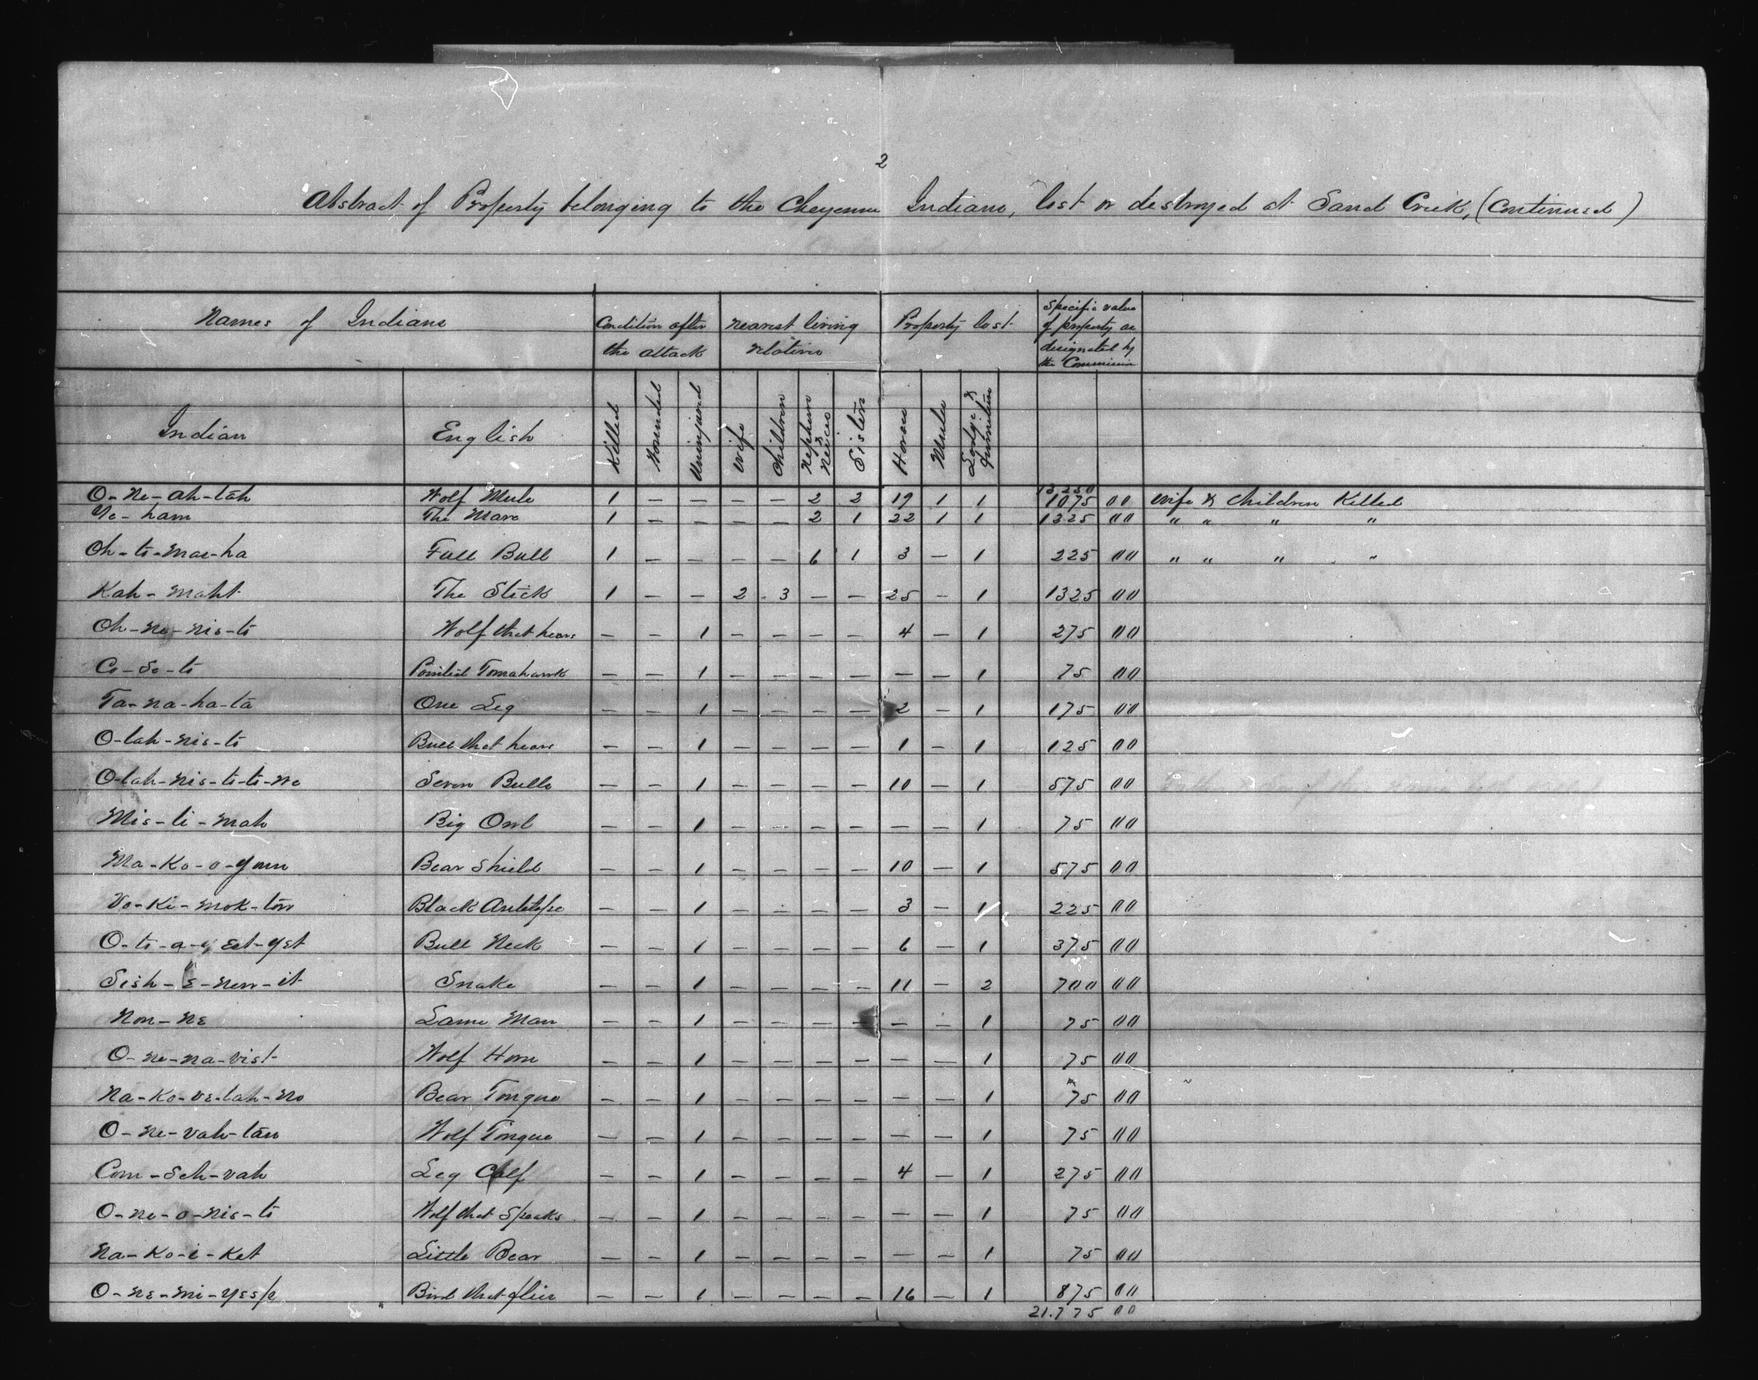 2
Abstract of Property belonging to the Cheyenne Indians, lost or destroyed at Sand Creek, (Continued)
Names of Indians | Condition after the attack | nearest living relatives | Property lost | Specific value of property as designated by the Commission
Indian | English | Killed | Wounded | Uninjured | Wife | Children | Nephews & Neices | Sisters | Horses | Mules | Lodge & Furniture
13250
O-ne-ah-tah | Wolf Mule | 1 | – | – | – | – | 2 | 2 | 19 | 1 | 1 | 1075 | 00 | Wife & Children Killed
Ne-ham | The Mare | 1 | – | – | – | – | 2 | 1 | 22 | 1 | 1 | 1325 | 00 | " " " "
Oh-to-mas-ha | Full Bull | 1 | – | – | – | – | 6 | 1 | 3 | – | 1 | 225 | 00 | " " " "
Kah-maht | The Stick | 1 | – | – | 2 | 3 | – | – | 25 | – | 1 | 1325 | 00
Oh-ne-nis-to | Wolf that hears | – | – | 1 | – | – | – | – | 4 | – | 1 | 275 | 00
Co-so-to | Pointed Tomahawk | – | – | 1 | – | – | – | – | – | – | 1 | 75 | 00
Ta-na-ha-ta | One Leg | – | – | 1 | – | – | – | – | 2 | – | 1 | 175 | 00
O-tah-nis-to | Bull that hears | – | – | 1 | – | – | – | – | 1 | – | 1 | 125 | 00
O-tah-nis-to-to-ne | Seven Bulls | – | – | 1 | – | – | – | – | 10 | – | 1 | 575 | 00
Mis-ti-mah | Big Owl | – | – | 1 | – | – | – | – | – | – | 1 | 75 | 00
Ma-Ko-o-yom | Bear Shield | – | – | 1 | – | – | – | – | 10 | – | 1 | 575 | 00
Vo-Ki-mok-ton | Black Antelope | – | – | 1 | – | – | – | – | 3 | – | 1 | 225 | 00
O-to-a-y Est-yst | Bull Neck | – | – | 1 | – | – | – | – | 6 | – | 1 | 375 | 00
Sish-E-new-it | Snake | – | – | 1 | – | – | – | – | 11 | – | 2 | 700 | 00
Non-NE | Lame Man | – | – | 1 | – | – | – | – | – | – | 1 | 75 | 00
O-ne-na-vist | Wolf Horn | – | – | 1 | – | – | – | – | – | – | 1 | 75 | 00
Na-Ko-ve-tah-no | Bear Tongue | – | – | 1 | – | – | – | – | – | – | 1 | 75 | 00
O-ne-vah-tan | Wolf Tongue | – | – | 1 | – | – | – | – | – | – | 1 | 75 | 00
Com-seh-vah | Leg Calf | – | – | 1 | – | – | – | – | 4 | – | 1 | 275 | 00
O-ne-o-nis-to | Wolf that Speaks | – | – | 1 | – | – | – | – | – | – | 1 | 75 | 00
Na-Ko-i-Ket | Little Bear | – | – | 1 | – | – | – | – | – | – | 1 | 75 | 00
O-ne-mi-yesp | Bird that flies | – | – | 1 | – | – | – | – | 16 | – | 1 | 875 | 00
21.775 00